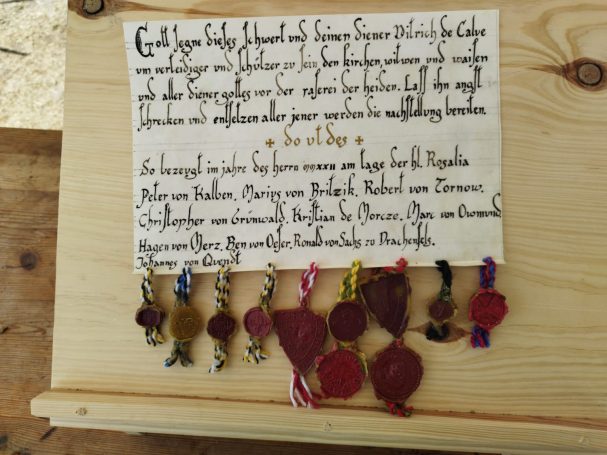 Gott segne dieses schwert und deinen diener Ditrich de Calve
um verteidiger und schützer zu sein den kirchen, witwen und waisen
und aller diener gottes vor der raserei der heiden. Lass ihn angst
schrecken und entsetzen aller jener werden die nachstellung bereiten.
✠ do ut des ✠
So bezeugt im jahre des herrn mmxxii am tage der hl. Rosalia
Peter von Kalben, Marius von Britzik, Robert von Tornow,
Christopher von Grünwald, Kristian de Morcze, Marc von Owmund
Hagen von Merz, Ben von Oeser, Ronald von Sachs zu Drachenfels,
Johannes von Quendt